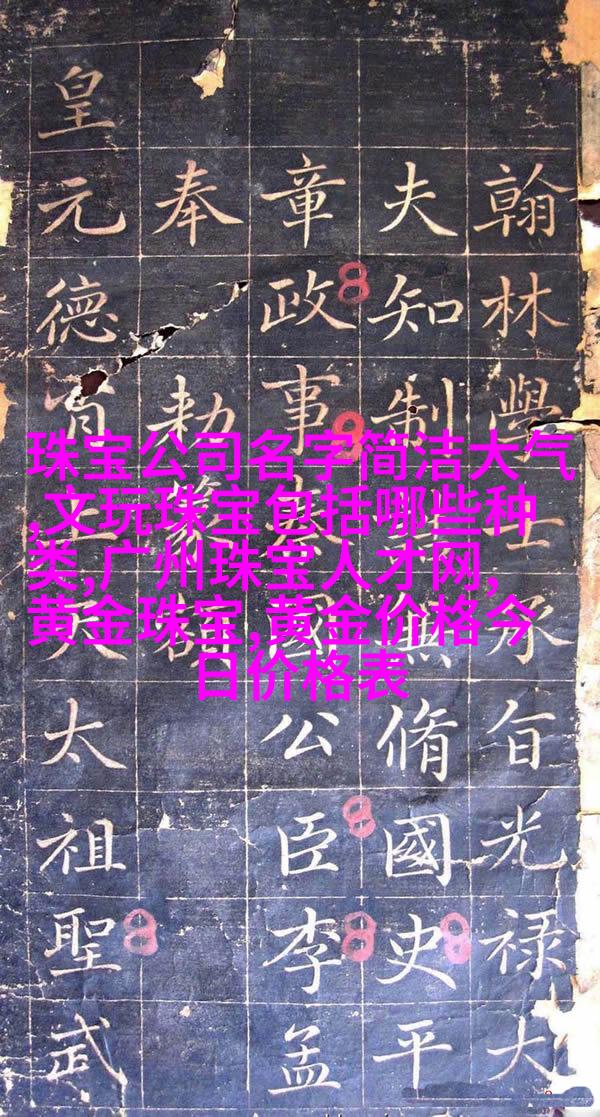 珠宝公司名字简洁大气
,文玩珠宝包括哪些种
类,广州珠宝人才网,
黄金珠宝,黄金价格今
日价格表
翰林學士承旨光禄大
夫知制兼脩國史平
章政事國公臣李孟
奉勅篆額
皇元德太祖聖武